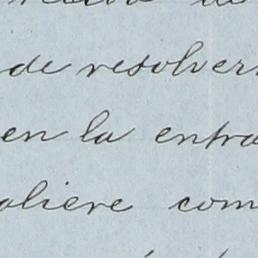 de resolver
en la entra
aliere com